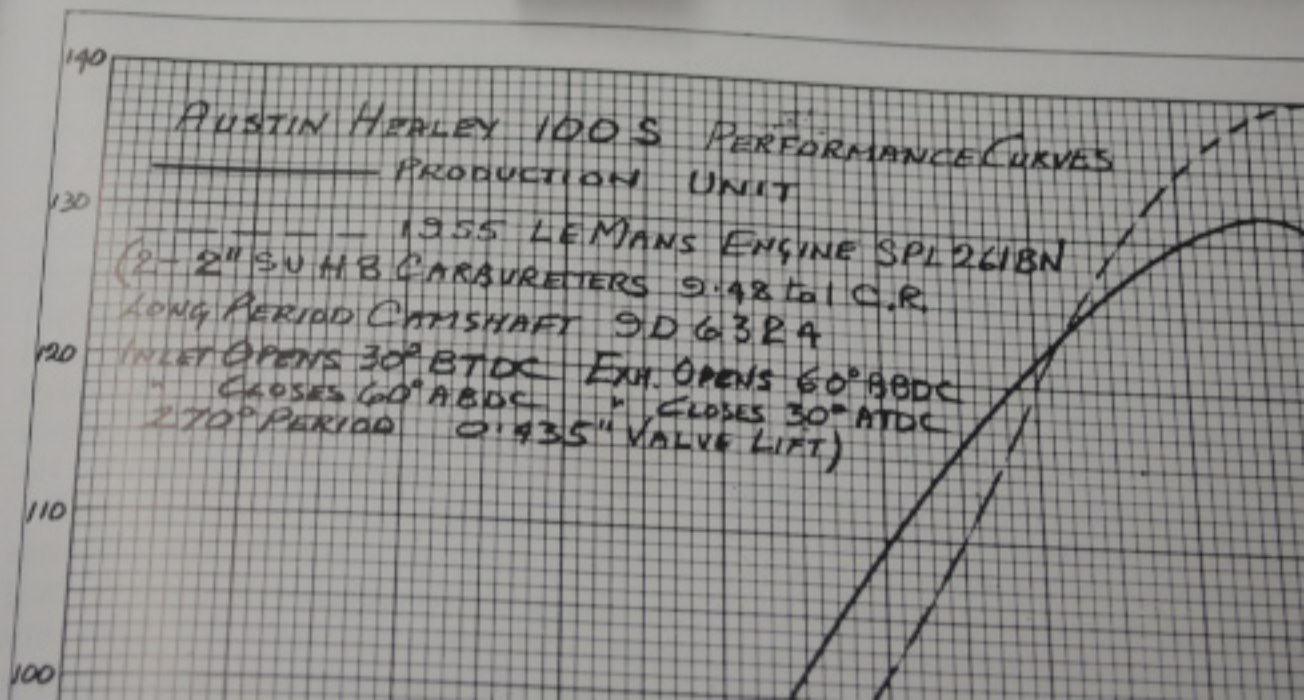 140
AUSTIN HEALEY 100 S PERFORMANCE CURVES
PRODUCTION UNIT
130
1955 LE MANS ENGINE SPL 261BN
(2-2" SU H8 CARBURETTERS 9.48 to 1 C.R.
LONG PERIOD CAMSHAFT
120
INLET OPENS 30° BTDC EXH. OPENS 60° BBDC
" CLOSES 60° ABDC " CLOSES 30° ATDC
270° PERIOD 0.435" VALVE LIFT)
110
100